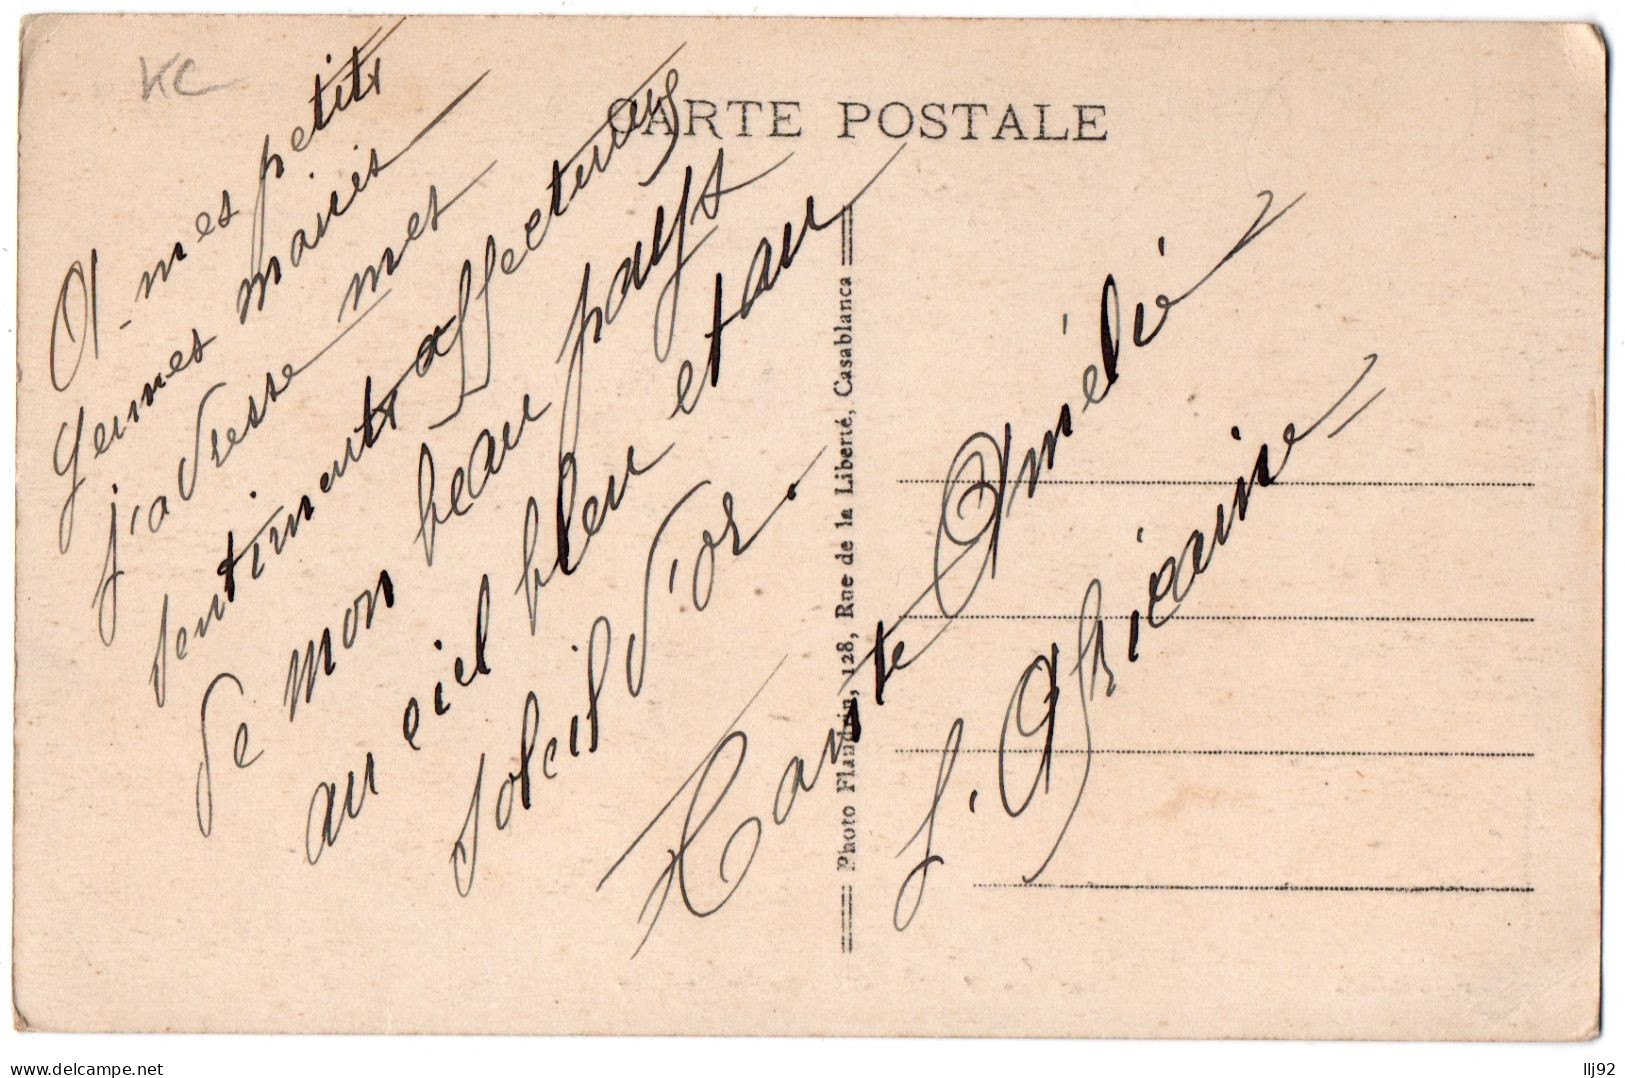 KC
CARTE POSTALE
A mes petits
jeunes mariés
j'adresse mes
sentiments affectueux
de mon beau pays
au ciel bleu et au
soleil d'or.
Tante Amélie
L'Africaine
Photo Flandrin, 128, Rue de la Liberté, Casablanca
llj92